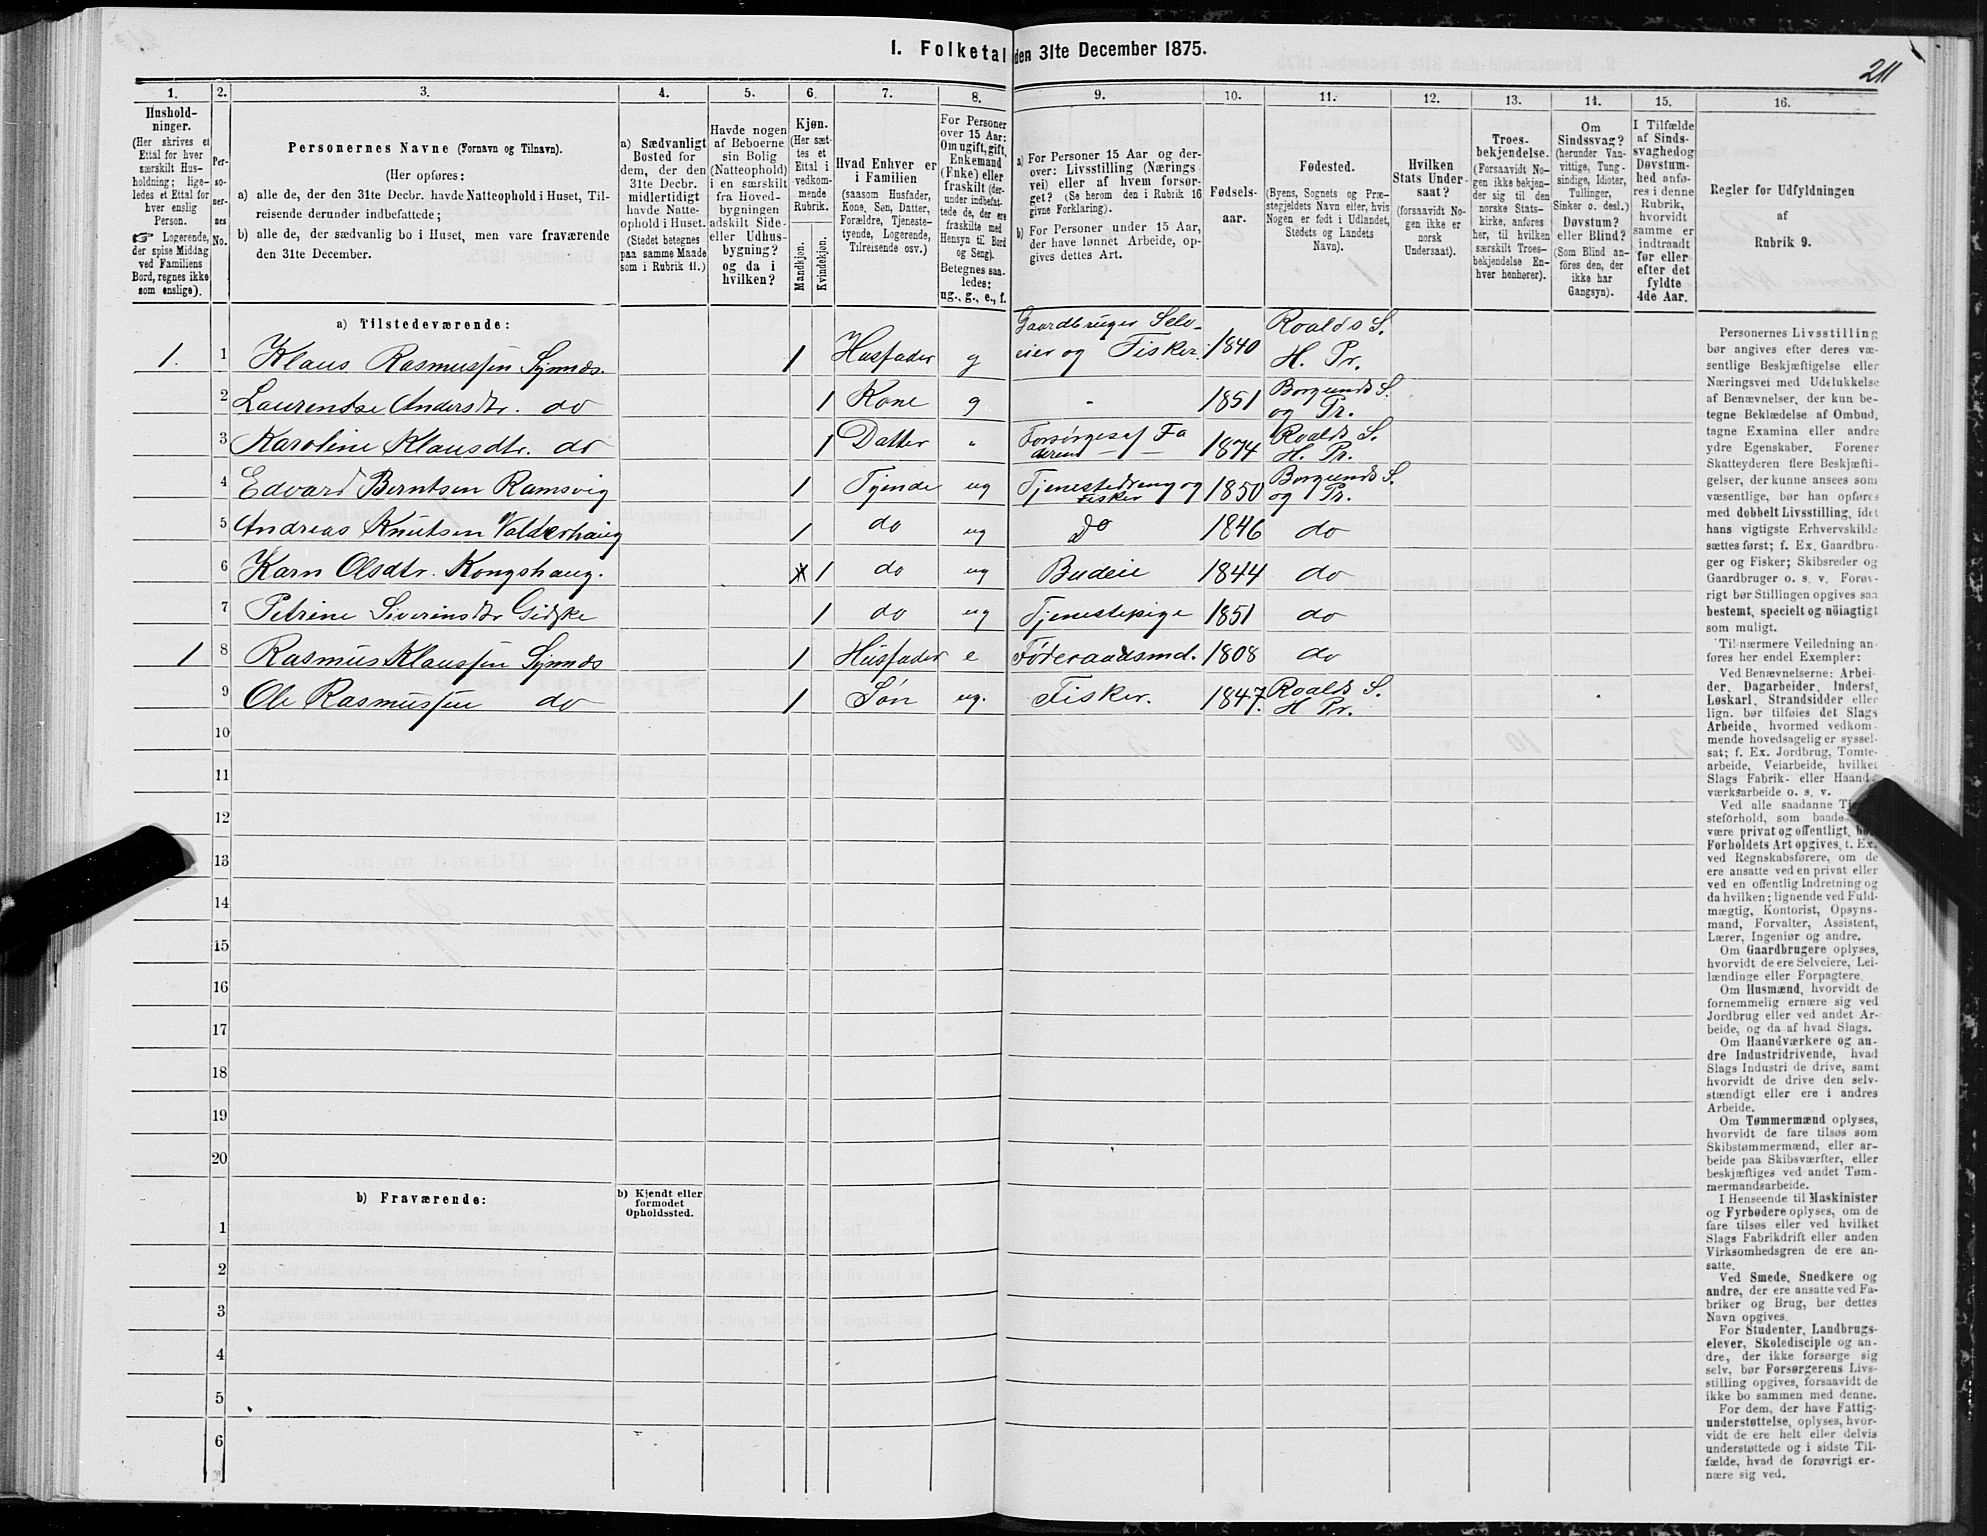 I. Folketal den 31te December 1875.
211
1.
2.
3.
4.
5.
6.
7.
8.
9.
10.
11.
12.
13.
14.
15.
16.
Hushold-
ninger.
(Her skrives et
Ettal for hver
særskilt Hus-
holdning; lige-
ledes et Ettal for
hver enslig
Person.
☞ Logerende,
der spise Middag
ved Familiens
Bord, regnes ikke
som enslige).
Per-
so-
ner-
nes
No.
Personernes Navne (Fornavn og Tilnavn).
(Her opføres:
a) alle de, der den 31te Decbr. havde Natteophold i Huset, Til-
reisende derunder indbefattede;
b) alle de, der sædvanlig bo i Huset, men vare fraværende
den 31te December.
a) Sædvanligt
Bosted for
dem, der den
31te Decbr.
midlertidigt
havde Natte-
ophold i Huset.
(Stedet betegnes
paa samme Maade
som i Rubrik 11.)
Havde nogen
af Beboerne
sin Bolig
(Natteophold)
i en særskilt
fra Hoved-
bygningen
adskilt Side-
eller Udhus-
bygning?
og da i
hvilken?
Kjøn.
(Her sæt-
tes et
Ettal i
vedkom-
mende
Rubrik.
Mandkjøn.
Kvindekjøn.
Hvad Enhver er
i Familien
(saasom Husfader,
Kone, Søn, Datter,
Forældre, Tjeneste-
tyende, Logerende,
Tilreisende osv.)
For Personer
over 15 Aar:
Om ugift, gift,
Enkemand
(Enke) eller
fraskilt (der-
under indbefat-
tede de, der ere
fraskilte med
Hensyn til Bord
og Seng).
Betegnes saa-
ledes:
ug., g., e., f.
a) For Personer 15 Aar og der-
over: Livsstilling (Nærings
vei) eller af hvem forsør-
get? (Se herom den i Rubrik 16
givne Forklaring).
b) For Personer under 15 Aar,
der have lønnet Arbeide, op-
gives dettes Art.
Fødsels-
aar.
Fødested.
(Byens, Sognets og Præ-
stegjeldets Navn eller, hvis
Nogen er født i Udlandet,
Stedets og Landets
Navn).
Hvilken
Stats Under-
saat?
(forsaavidt No-
gen ikke er
norsk
Undersaat).
Troes-
bekjendelse.
(Forsaavidt No-
gen ikke bekjen-
der sig til den
norske Stats-
kirke, anføres
her, til hvilken
særskilt Troes-
bekjendelse En-
hver henhører).
Om
Sindssvag?
(herunder Van-
vittige, Tung-
sindige, Idioter,
Tullinger,
Sinker o. desl.)
Døvstum?
eller Blind?
(Som Blind an-
føres den, der
ikke har
Gangsyn).
I Tilfælde
af Sinds-
svaghed og
Døvstum-
hed anfø-
res i denne
Rubrik,
hvorvidt
samme er
indtraadt
før eller
efter det
fyldte
4de Aar.
Regler for Udfyldningen
af
Rubrik 9.
a) Tilstedeværende:
1. 1 Klaus Rasmussen Synnes. 1 Husfader g Gaardbruger Selv-
eier og Fisker. 1840 Roalds S.
H. Pr.
2 Laurentse Andersdtr. do 1 Kone g " 1851 Borgunds S.
og Pr.
3 Karoline Klausdtr. do 1 Datter " Forsørges af Fa
deren 1874 Roalds S.
H. Pr.
4 Edvard Berntsen Ramsvig 1 Tyende ug Tjenestedreng og
Fisker 1850 Borgunds S.
og Pr.
5 Andreas Knutsen Valderhaug 1 do ug Do 1846 do
6 Karn Olsdtr. Kongshaug. 1 do ug Budeie 1844 do
7 Petrine Siverinsdtr Gidske 1 do ug Tjenestepige 1851 do
1 8 Rasmus Klaussen Synnes 1 Husfader e Føderaadsmd. 1808 do
9 Ole Rasmussen do 1 Søn ug. Fisker. 1847. Roalds S.
H Pr.
10
11
12
13
14
15
16
17
18
19
20
b) Fraværende:
b) Kjendt eller
formodet
Opholdssted.
1
2
3
4
5
6
Personernes Livsstilling
bør angives efter deres væ-
sentlige Beskjæftigelse eller
Næringsvei med Udelukkelse
af Benævnelser, der kun be-
tegne Beklædelse af Ombud,
tagne Examina eller andre
ydre Egenskaber. Forener
Skatteyderen flere Beskjæfti-
gelser, der kunne ansees som
væsentlige, bør han opføres
med dobbelt Livsstilling, idet
hans vigtigste Erhvervskilde
sættes først; f. Ex. Gaardbru-
ger og Fisker; Skibsreder og
Gaardbruger o. s. v. Forøv-
rigt bør Stillingen opgives saa
bestemt, specielt og nöiagtigt
som muligt.
Til nærmere Veiledning an-
føres her endel Exempler:
Ved Benævnelserne: Arbei-
der, Dagarbeider, Inderst,
Løskarl, Strandsidder eller
lign. bør tilføies det Slags
Arbeide, hvormed vedkom-
mende hovedsagelig er syssel-
sat; f. Ex. Jordbrug, Tomte-
arbeide, Veiarbeide, hvilket
Slags Fabrik- eller Haand-
værksarbeide o. s. v.
Ved alle saadanne
steforhold, som baade
være privat og offentligt,
Forholdets Art opgives, t. Ex.
ved Regnskabsførere, om de
ere ansatte ved en privat eller
ved en offentlig Indretning og
da hvilken; lignende ved Fuld-
mægtig, Kontorist, Opsyns-
mand, Forvalter, Assistent,
Lærer, Ingeniør og andre.
Om Gaardbrugere oplyses,
hvorvidt de ere Selveiere, Lei-
lændinge eller Forpagtere.
Om Husmænd, hvorvidt de
fornemmelig ernære sig ved
Jordbrug eller ved andet Ar-
beide, og da af hvad Slags.
Om Haandværkere og an-
dre Industridrivende, hvad
Slags Industri de drive, samt
hvorvidt de drive den selv-
stændigt eller ere i andres
Arbeide.
Om Tømmermænd oplyses,
hvorvidt de fare tilsøs som
Skibstømmermænd, eller ar-
beide paa Skibsværfter, eller
beskjæftiges ved andet Tøm-
mermandsarbeide.
I Henseende til Maskinister
og Fyrbødere oplyses, om de
fare tilsøs eller ved hvilket
Slags Fabrikdrift eller anden
Virksomhedsgren de ere an-
satte.
Ved Smede, Snedkere og
andre, der ere ansatte ved Fa-
briker og Brug, bør dettes
Navn opgives.
For Studenter, Landbrugs-
elever, Skoledisciple og an-
dre, der ikke forsørge sig
selv, bør Forsørgerens Livs-
stilling opgives, forsaavidt de
ikke bo sammen med denne.
For dem, der have Fattig-
understøttelse, oplyses, hvor-
vidt de ere helt eller delvis
understøttede og i sidste Til-
fælde, hvad de forøvrigt er-
nære sig ved.